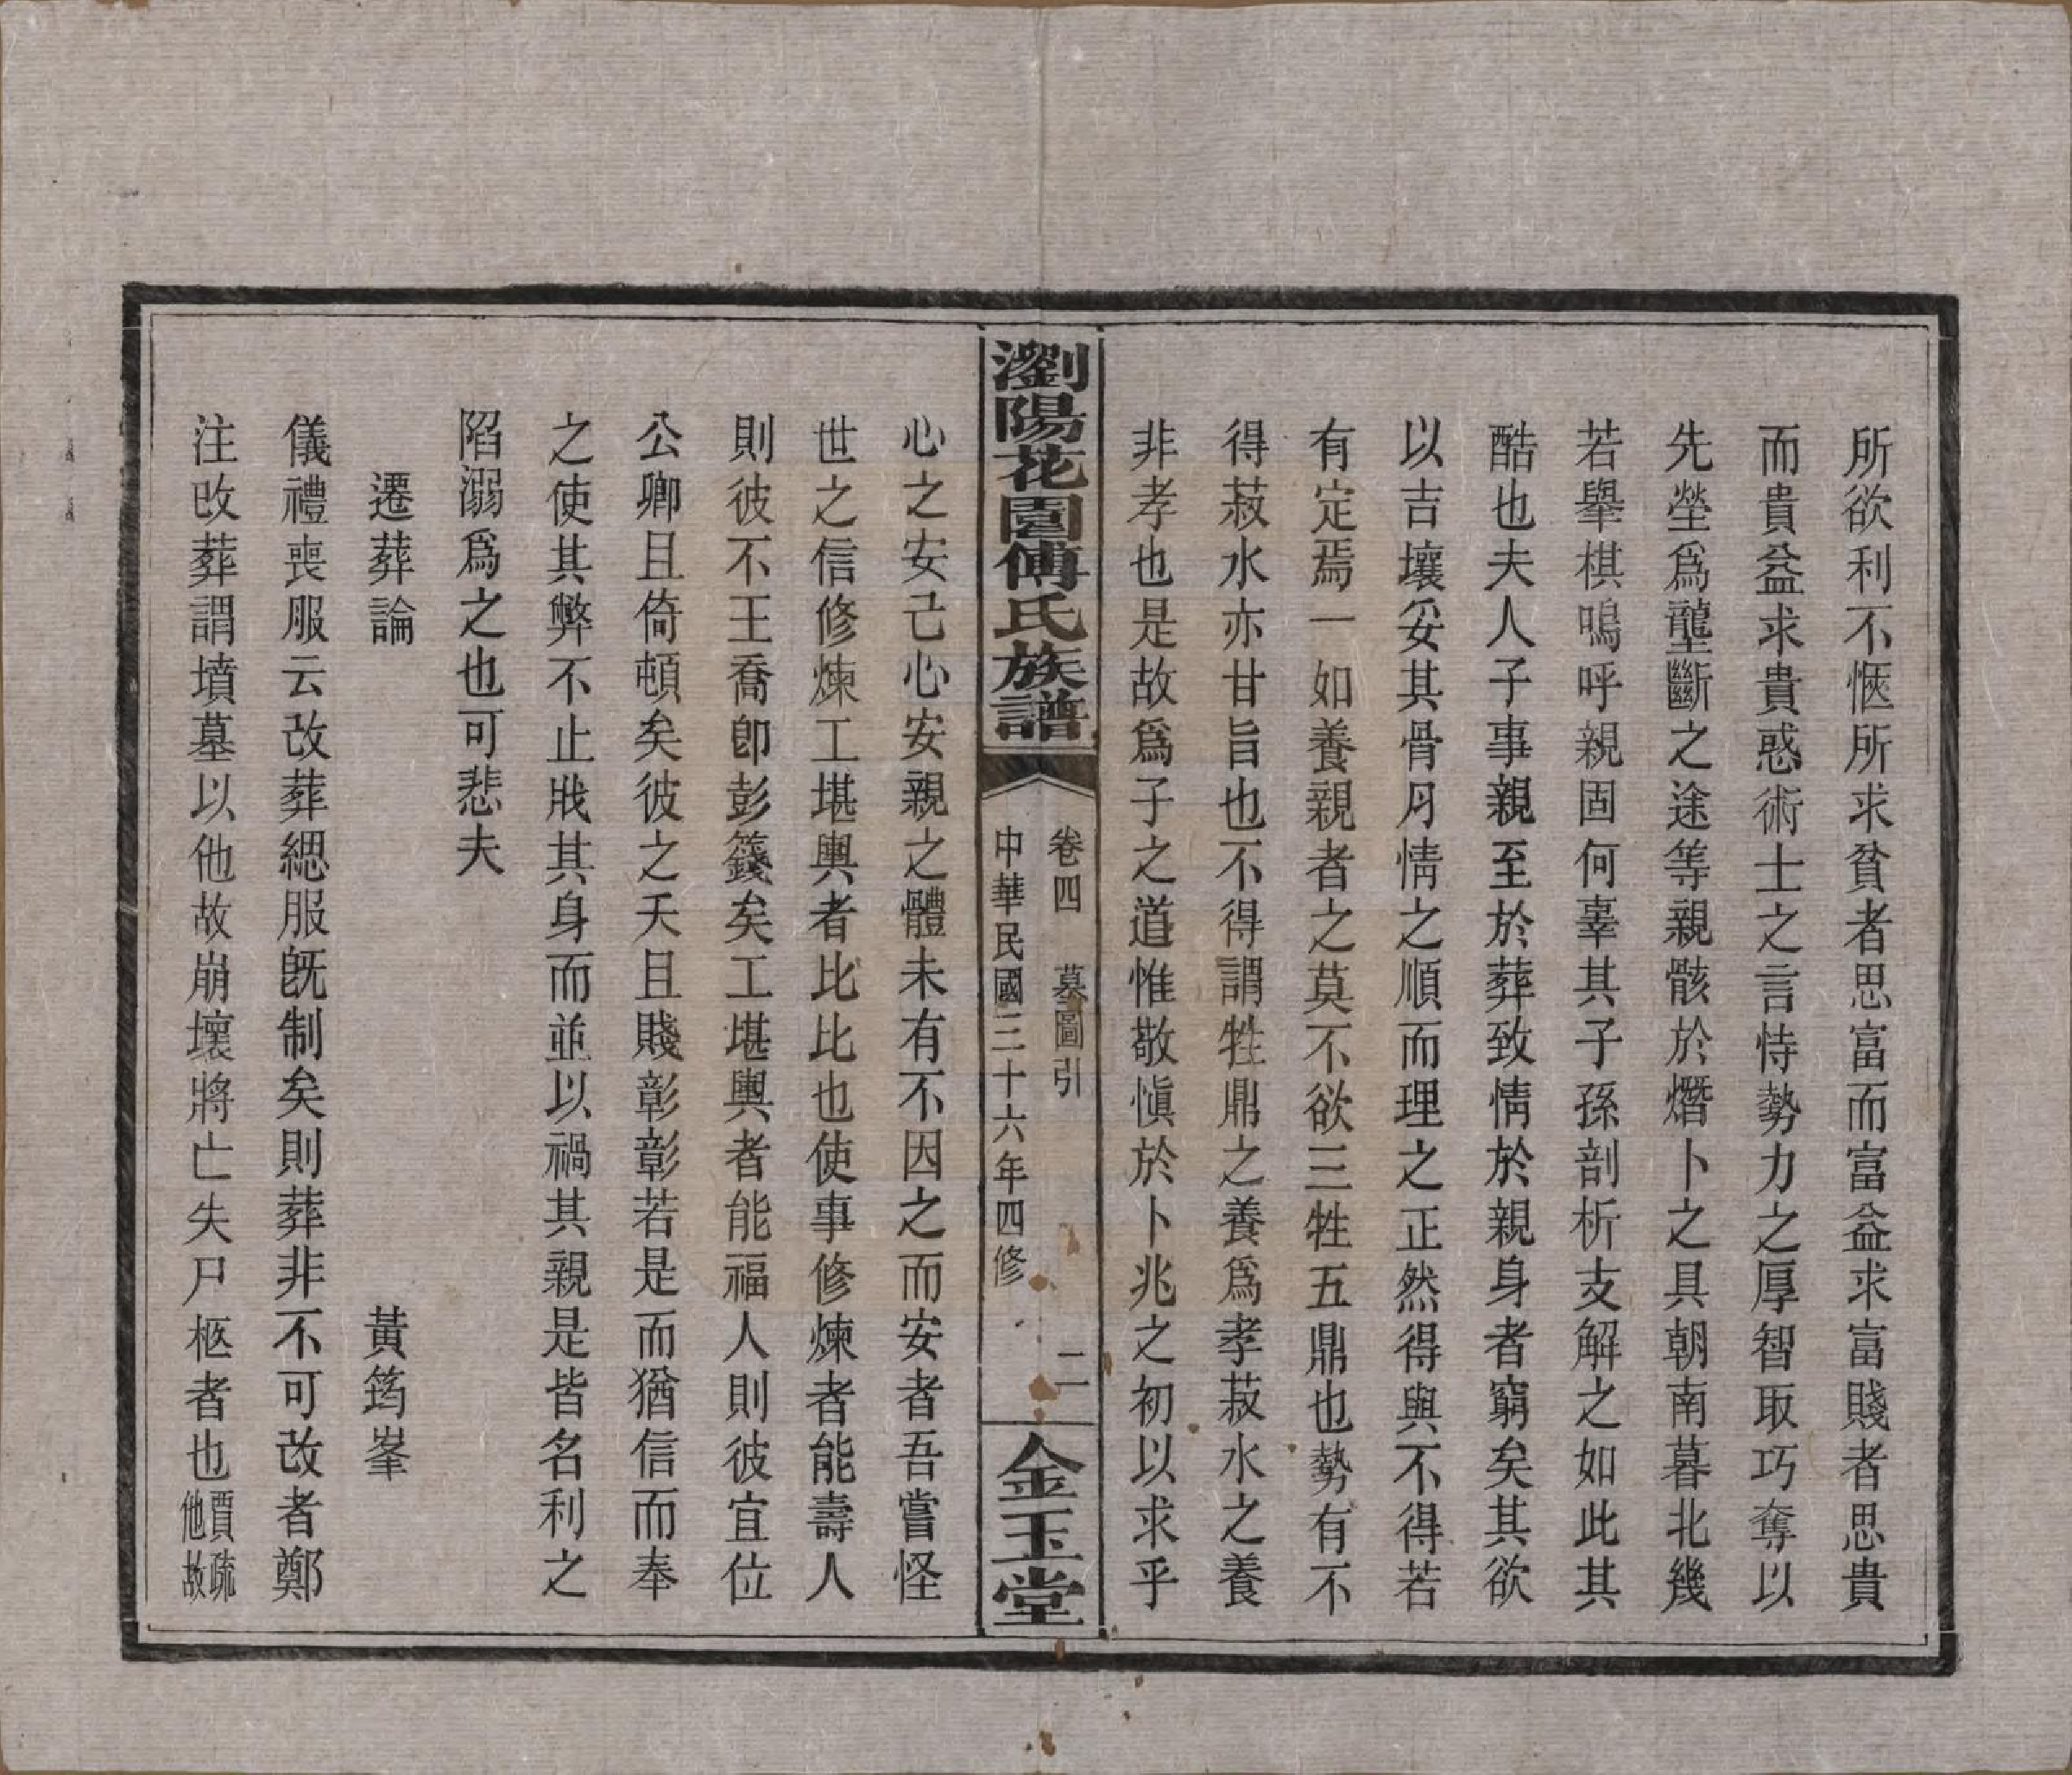 所欲利不愜所求貧者思富而富益求富賤者思貴
而貴益求貴惑術士之言恃勢力之厚智取巧奪以
先塋爲龍斷之途等親骸於熸卜之具朝南暮北幾
若舉棋嗚呼親固何辜其子孫剖析支解之如此其
酷也夫人子事親至於葬致情於親身者窮矣其欲
以吉壤妥其骨月情之順而理之正然得與不得若
有定焉一如養親者之莫不欲三牲五鼎也勢有不
得菽水亦甘旨也不得謂牲鼎之養爲孝菽水之養
非孝也是故爲子之道惟敬愼於卜兆之初以求乎
瀏陽花園傅氏族譜
卷四 墓圖引 二
中華民國三十六年四修
金玉堂
心之安己心安親之體未有不因之而安者吾嘗怪
世之信修煉工堪輿者比比也使事修煉者能壽人
則彼不王喬卽彭籛矣工堪輿者能福人則彼宜位
公卿且倚頓矣彼之夭且賤彰彰若是而猶信而奉
之使其弊不止戕其身而並以禍其親是皆名利之
陷溺爲之也可悲夫
遷葬論 黃筠峯
儀禮喪服云改葬緦服旣制矣則葬非不可改者鄭
注改葬謂墳墓以他故崩壞將亡失尸柩者也賈疏
他故